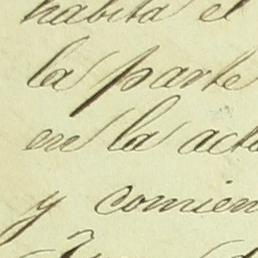 habita el
la parte
en la actu
y comien